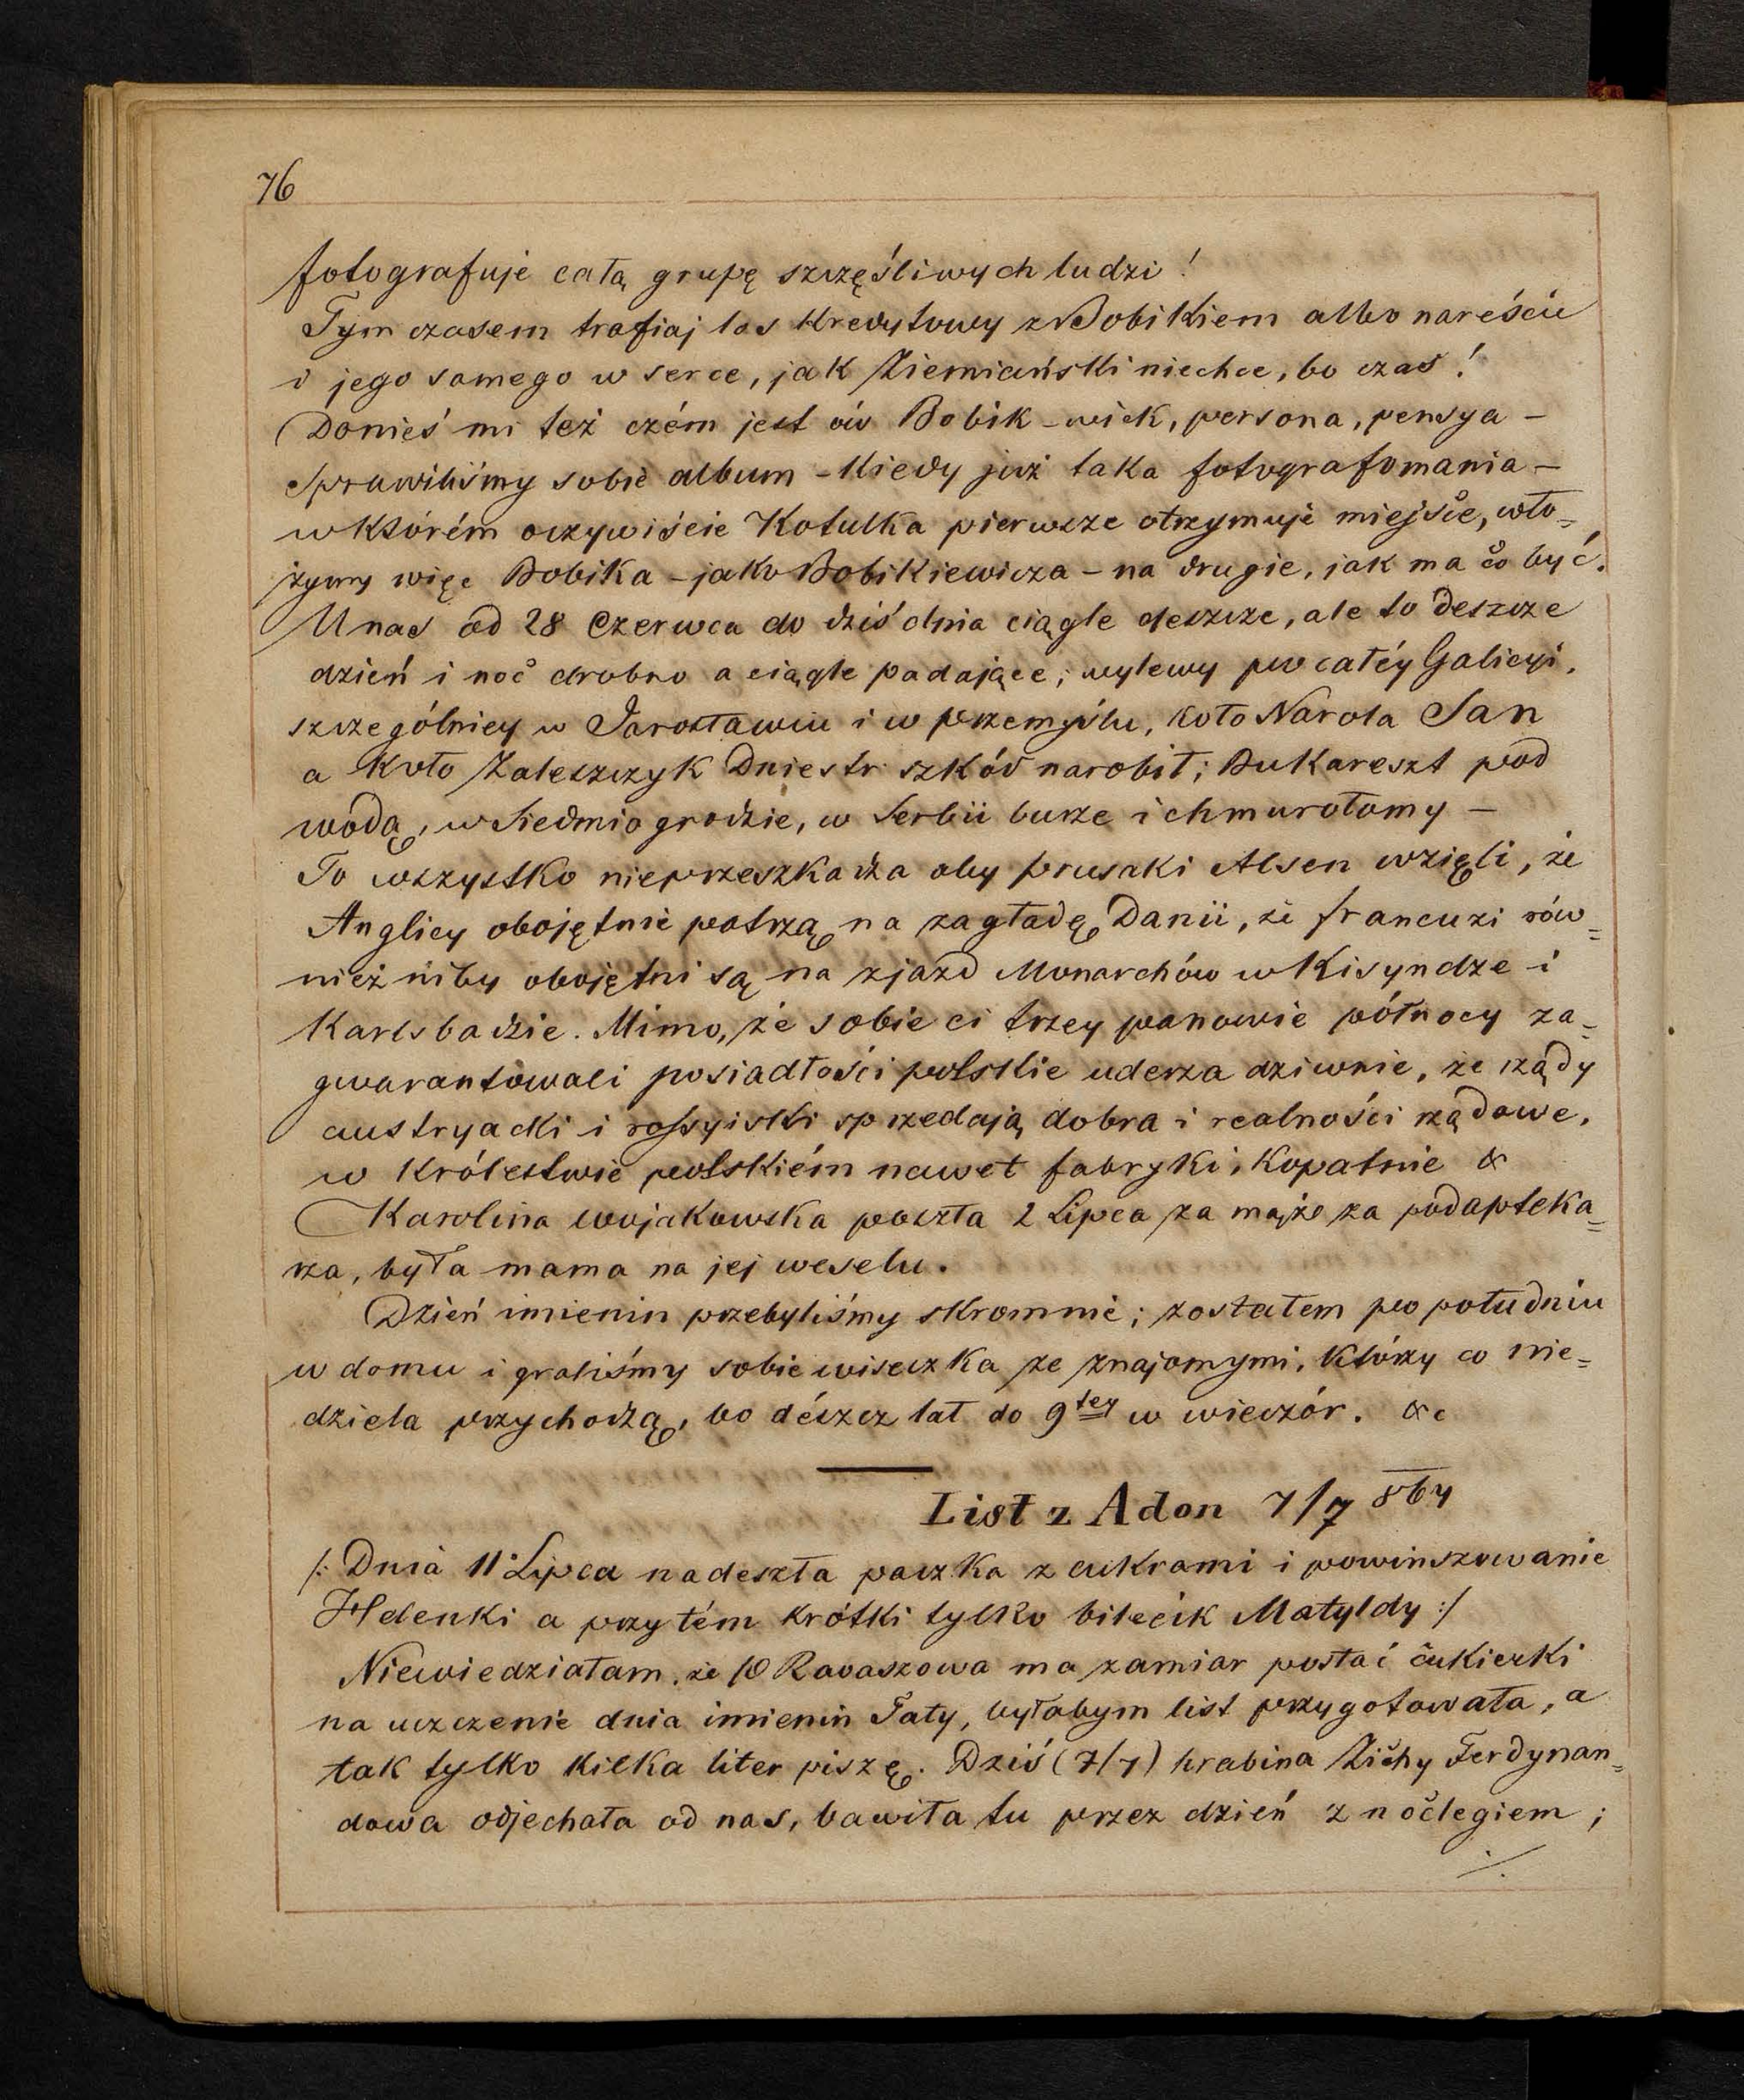 76
fotografuje całą grupę szczęśliwych ludzi!
Tym czasem trafiaj los Kredytowy z Bobikiem albo nareście
i jego samego w serce, jak Ziemiański niechce, bo czas!
Donieś mi też czém jest ów Bobik – wiek, persona, pensya –
Sprawiliśmy sobie album – Kiedy już taka fotografomania –
w Którém oczywiście Kotulka pierwsze otrzymuje miejsce, wło=
żymy więc Bobika – jako Bobikiewicza – na drugie, jak ma co być.
U nas od 28 Czerwca do dziś dnia ciągle deszcze, ale to deszcze
dzień i noc drobno a ciągle padające; wylewy po całéy Galicyi,
szczególniey w Jarosławiu i w Przemyślu, koło Narola San
a Koło Zaleszczyk Dniestr szkód narobił; Bukareszt pod
wodą, w Siedmiogrodzie, w Serbii burze i chmurołomy –
To wszystko nieprzeszkadza aby prusaki Alsen wzięli, że
Anglicy obojętnie patrzą na zagładę Danii, że francuzi rów=
nież niby obojętni są na zjazd Monarchów w Kisyndze i
Karlsbadzie. Mimo, że sobie ci trzey panowie północy za=
gwarantowali posiadłości polskie uderza dziwnie, że rządy
austryacki i rossyiski sprzedają dobra i realności rządowe,
w Królestwie polskiém nawet fabryki, Kopalnie &
Karolina Wojakowska poszła 2 Lipca za mąż za podapteka=
rza, była mama na jej weselu.
Dzień imienin przebyliśmy skromnie; zostałem po południu
w domu i graliśmy sobie wiseczka ze znajomymi, Którzy co nie=
dziela przychodzą, bo dészcz lał do 9tey w wieczór. &c
List z Adon 7/7 864
/: Dnia 11 Lipca nadeszła paczka z cukrami i powinszowanie
Helenki a przytém krótki tylko bilecik Matyldy :/
Niewiedziałam, że P Ravaszowa ma zamiar posłać cukierki
na uczczenie dnia imienin Taty, byłabym list przygotowała, a
tak tylko kilka liter piszę. Dziś (7/7) hrabina Zichy Ferdynan=
dowa odjechała od nas, bawiła tu przez dzień z noclegiem;
./.